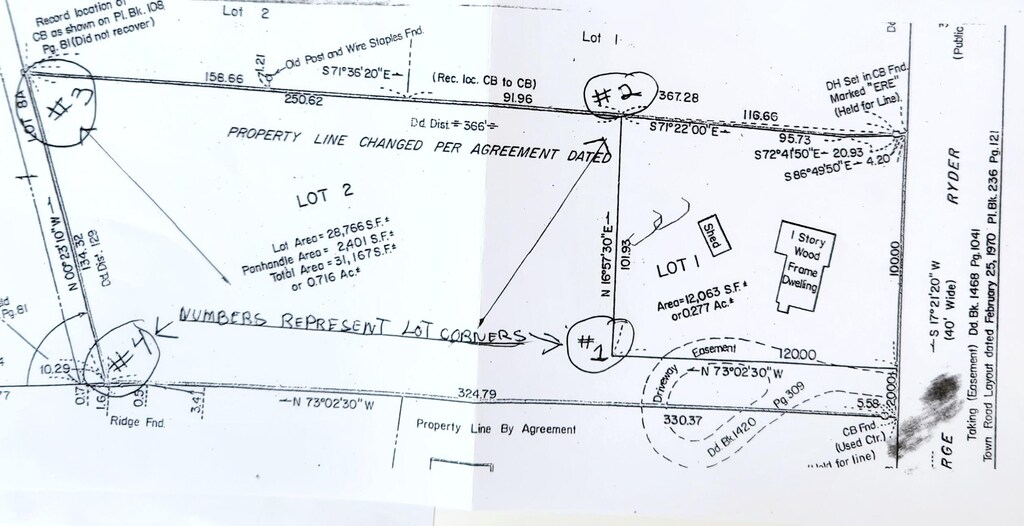 Record location of
CB as shown on Pl. Bk. 108,
Pg. 81 (Did not recover)
Lot 2
Lot 1
158.66
1.21
Old Post and Wire Staples Fnd.
S 71°36'20" E
250.62
(Rec. loc. CB to CB)
91.96
#2
367.28
116.66
DH Set in CB Fnd.
Marked "ERE"
(Held for Line)
Dd. Dist. = 366'±
S 71°22'00" E
95.73
S 72°41'50" E 20.93
S 86°49'50" E 4.20
PROPERTY LINE CHANGED PER AGREEMENT DATED
LOT 8A
#3
LOT 2
Lot Area = 28,766 S.F.±
Panhandle Area = 2,401 S.F.±
Total Area = 31,167 S.F.±
or 0.716 Ac.±
N 00°23'10" W
134.32
Dd. Dist. 129
N 16°57'30" E
101.93
Shed
LOT 1
Area = 12,063 S.F.±
or 0.277 Ac.±
1 Story
Wood
Frame
Dwelling
100.00
Pg. 81
NUMBERS REPRESENT LOT CORNERS
#4
#1
Easement
120.00
N 73°02'30" W
Driveway
20.00
10.29
0.7
1.6
0.5
3.4
N 73°02'30" W
324.79
330.37
Dd. Bk. 1420 Pg. 309
5.58
Ridge Fnd.
Property Line By Agreement
CB Fnd.
(Used Ctr.)
(Held for line)
RGE RYDER
S 17°21'20" W
(40' Wide)
(Public
Taking (Easement) Dd. Bk. 1468 Pg. 1041
Town Road Layout dated February 25, 1970 Pl. Bk. 236 Pg. 121